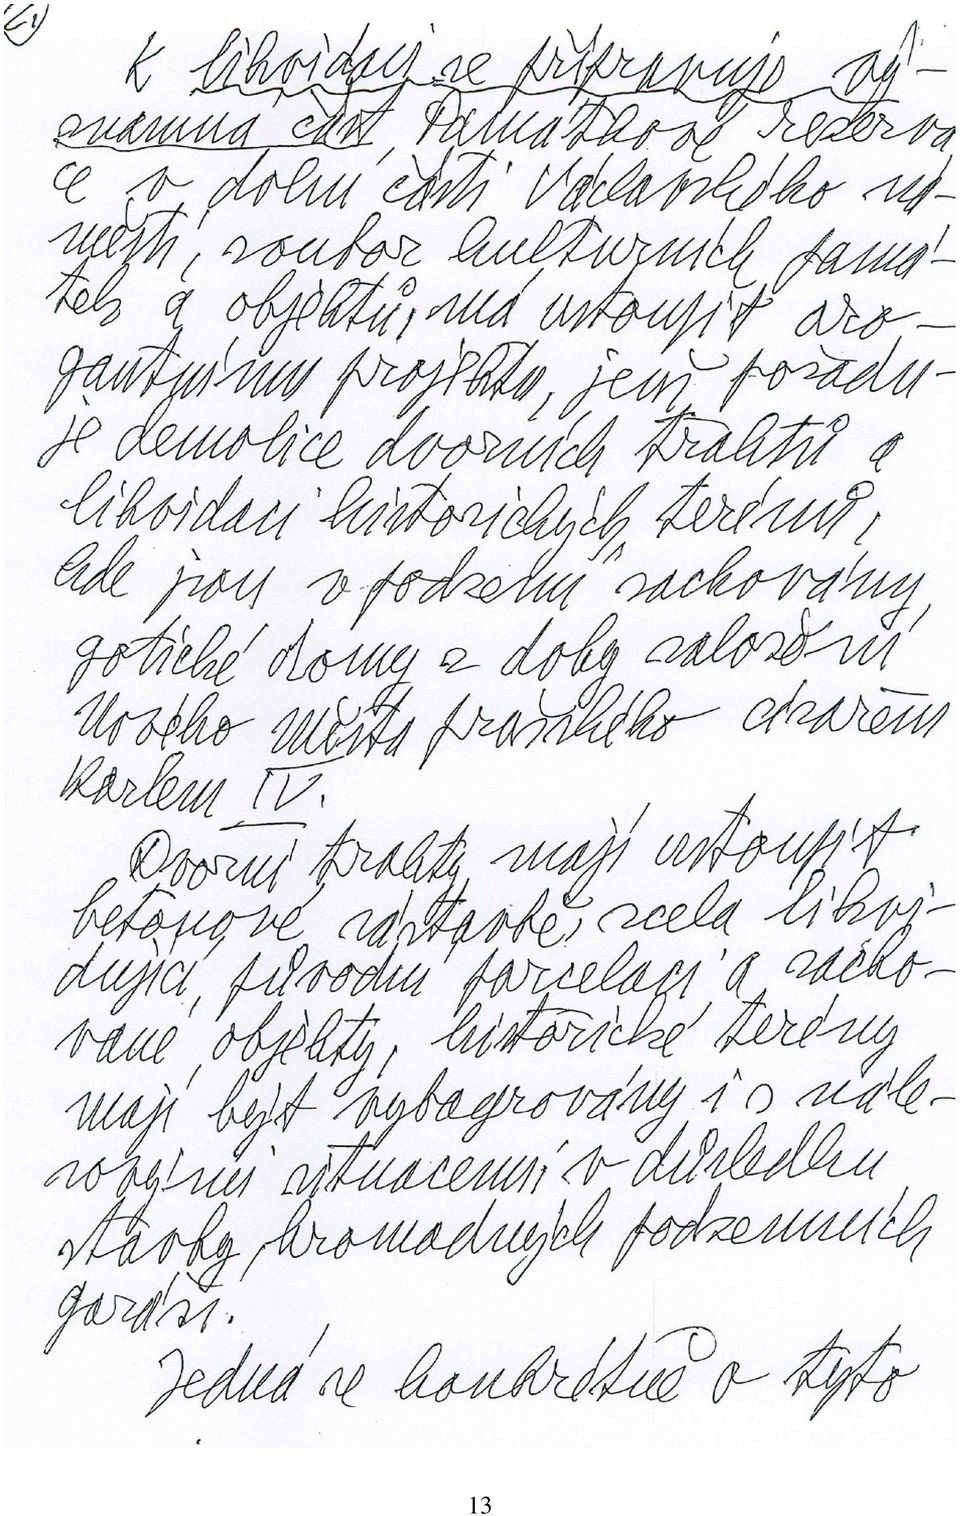 2,)
K likvidaci se připravuje vý-
znamná část Památkové rezerva
ce v dolní části Václavského ná-
městí, soubor kulturních pamá-
tek a objektů, má ustoupit aro-
gantnímu projektu, jenž požadu-
je demolice dvorních traktů a
likvidaci historických terénů,
kde jsou v podzemí zachovány
gotické domy z doby založení
Nového Města pražského císařem
Karlem IV.
Dvorní trakty mají ustoupit
betonové zástavbě, zcela likvi-
dující původní parcelaci a zacho-
vané objekty, historické terény
mají být vybagrovány i s nále-
zovými situacemi v důsledku
stavby hromadných podzemních
garáží.
Jedná se konkrétně o tyto
13